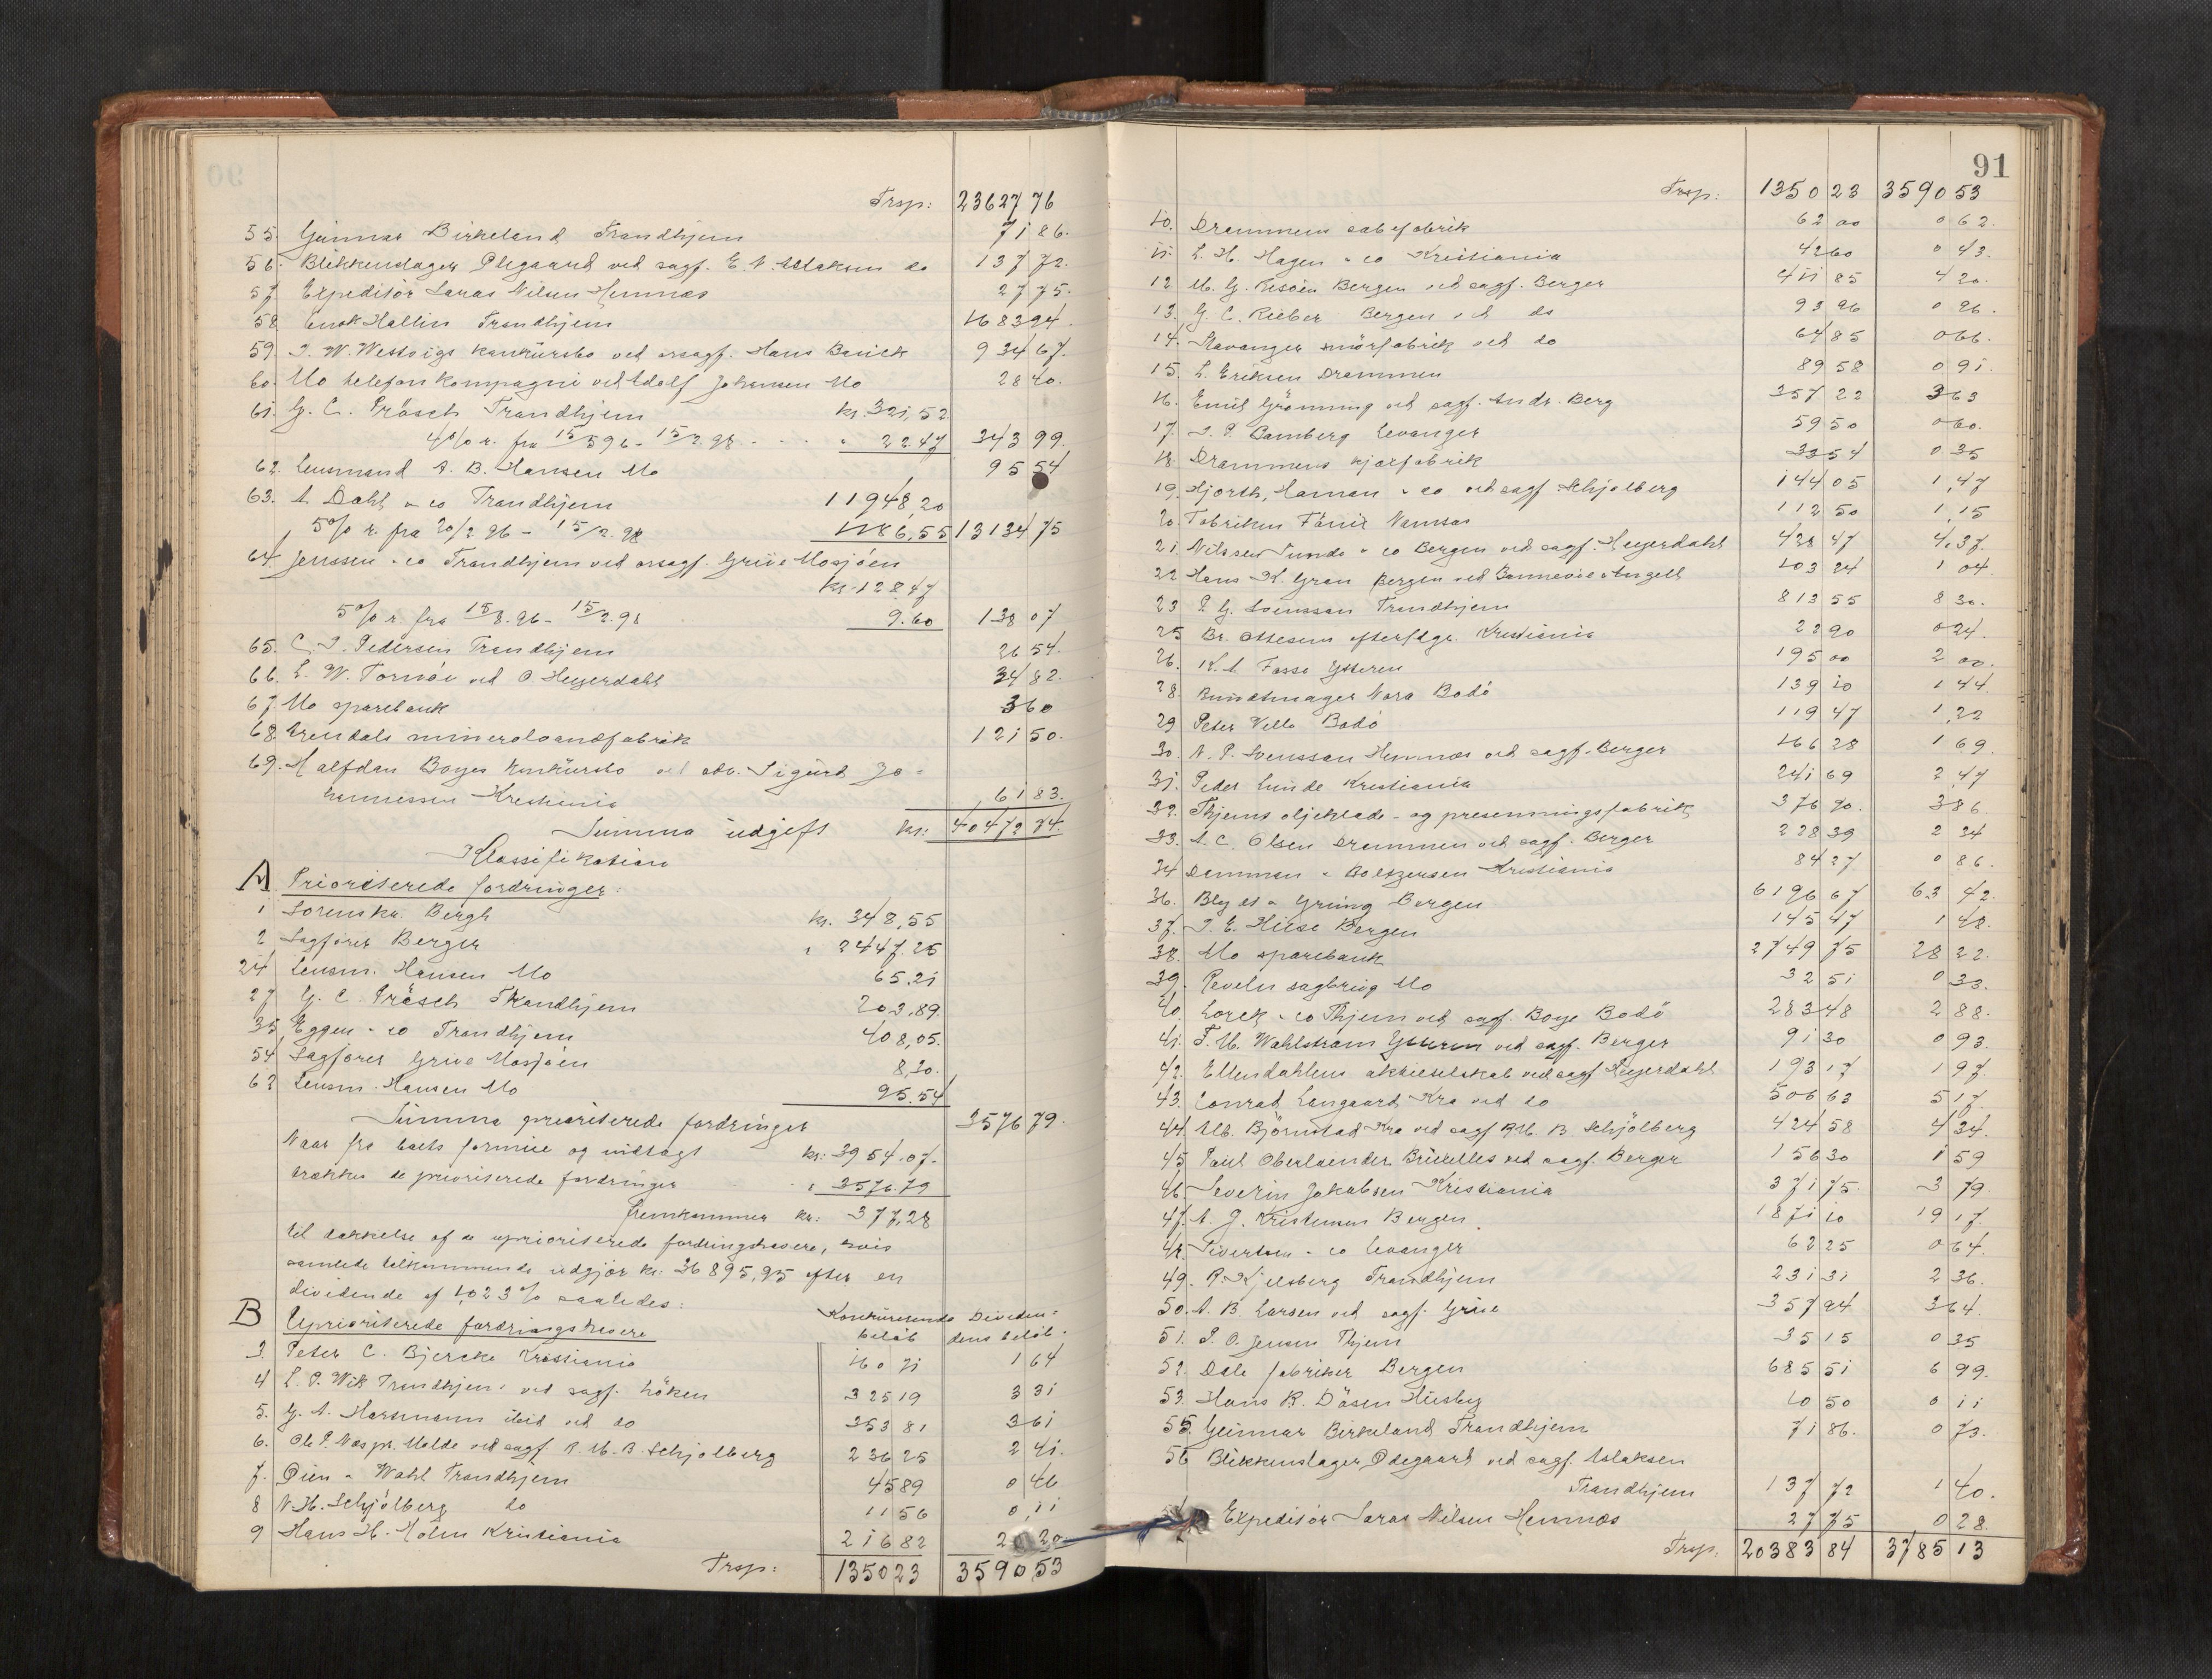 Trsp: 23627 76
55. Gunnar Birkeland Trondhjem 71 86.
56. Blikkenslager Ødegaard ved sagf. E. N. Aslaksen do 137 72.
57 Expeditör Laras Nilsen Hemnæs 27 75.
58 Enok Hallin Trondhjem 1683 94.
59. I. W. Westvigs konkursbo ved orsagf. Hans Bauck 934 67.
60. Mo telefonkompagni ved Adolf Johansen Mo 28 40.
61. G. C. Präsch Trondhjem kr. 321,52
4% r. fra 15/5 96 - 15/2. 98 - " 22.47 343 99.
62. Lensmand A. B. Hansen Mo 95 54
63. A. Dahl & co Trondhjem 11948,20
5% r. fra 20/2. 96 - 15/2. 98 1186,55 13134 75
64 Jenssen & co Trondhjem ved orsagf. Grive Mosjöen
kr. 128 47
5% r. fra 15/8. 96 - 15/2. 98 9.60 138 07
65. C. I. Pedersen Trondhjem 26 54.
66. L. W. Tornöe ved O. Heyerdahl 34 82.
67. Mo sparebank 3 60
68. Arendals mineralvandfabrik 121 50.
69. Halfdan Boyes konkursbo ved adv. Sigurd Jo-
hannessen Kristiania 61 83.
Summa udgift kr: 40472 74.
Klassifikation
A Prioriterede fordringer:
1 Sorenskr. Bergh kr. 348,55
2 Sagförer Berger " 2447.25
24 Lensm. Hansen Mo 65.21
27 G. C. Präsch Trondhjem 203,89.
35 Eggen & co Trondhjem 408,05.
54 Sagförer Grive Mosjöen 8,30.
62 Lensm. Hansen Mo 95.54
Summa prioriterede fordringer 3576 79.
Naar fra boets formue og indtægt kr: 3954.07.
trækkes de prioriterede fordringer " 3576.79
fremkommer kr: 377,28
til dækkelse af de uprioriterede fordringshavere, hvis
samlede tilkommende udgjör kr: 36895,95 efter en
dividende af 1,023% saaledes:
B Uprioriterede fordringshavere Konkurrerende belöb Dividendens belöb.
3. Peter C. Bjercke Kristiania 160 71 1 64
4 L. P. Wik Trondhjem ved sagf. Löken 325 19 3 31
5. G. A. Hartmann ibid ved do 353 81 3 61
6. Ole P. Næsgr. Molde ved sagf. R. M. B. Schjølberg 236 25 2 41.
7. Øien & Wahl Trondhjem 45 89 0 46
8 N. H. Schjölberg do 11 56 0,11
9 Hans H. Holm Kristiania 216 82 2 20
Trsp: 1350 23 3590 53
91
Trsp: 1350 23 3590 53
10. Drammens sæbefabrik 62 00 0 62.
11. L. H. Hagen & co Kristiania 42 60 0 43.
12 M. G. Resöen Bergen ved sagf. Berger 411 85 4 20.
13. G. C. Rieber Bergen ved do 93 96 0 96.
14. Stavanger smörfabrik ved do 64 85 0 66.
15. L. Eriksen Drammen 89 58 0 91.
16. Emil Grönning ved sagf. Andr. Berg 357 22 3 63
17. I. P. Bamberg Levanger 59 50 0 60.
18. Drammens kjæxfabrik 33 54 0 35
19. Hjorth, Haman & co ved sagf. Schjølberg 144 05 1,47
20. Fabriken Fönix Namsos 112 50 1,15
21. Nilssen Sunde & co Bergen ved sagf. Heyerdahl 428 47 4.37.
22 Hans K. Gran Bergen ved Bonnevie Angell 103 24 1 04
23 P. G. Svensson Trondhjem 813 55 8 30.
25 Br. Ottesens efterflgr. Kristiania 22 90 0 24.
26. K. A Fasse Ytteren 195 00 2 00.
28. Bundtmager Nora Bodö 139 10 1 44.
29 Peter Velle Bodö 119 47 1,22
30. N. P. Svensson Hemnæs ved sagf. Berger 166 28 1 69.
31. Peder Lunde Kristiania 241 69 2,47
32. Thjems oljeklæde- og presenningsfabrik 376 90. 3 86
33. A. C. Olsen Drammen ved sagf. Berger 228 39 2 34
34 Damman & Boltzersen Kristiania 84 27. 0 86.
36. Blydt & Grung Bergen 6196 67 63 42.
37. I. E. Huse Bergen 145 47 1 48.
38. Mo sparebank 2749 75 28 22.
39. Revelen sagbrug Mo 32 51 0 33.
40. Lorck & co Thjem ved sagf. Boye Bodö 283 48 2 88.
41. F. M. Wahlstrøm Ytteren ved sagf. Berger 91 30 0 93.
42. Ellendahlens aktieselskab ved sagf Heyerdahl 193 17 1 97.
43. Conrad Langaard Kra ved do 506 63 5 17.
44 Alb. Björnstad Kra ved sagf R. M. B. Schjölberg 424 58 4 34.
45. Paul Oberlaender Brüxelles ved sagf. Berger 156 30 1 59
46. Severin Jakobsen Kristiania 371 75. 3 79.
47. A. J. Kristensen Bergen 1871 10 19 17.
48. Sivertsen & co Levanger 62 25 0 64.
49. R. Kjelsberg Trondhjem 231 31 2 36.
50. A. B. Larsen ved sagf. Grive 357 94 3 64.
51. P. O. Jensen Thjem 35 15 0 35
52. Dale fabriker Bergen 685 51 6 99.
53. Hans R. Dåsen Husby 10 50 0 11
55. Gunnar Birkeland Trondhjem 71 86. 0 73.
56 Blikkenslager Ødegaard ved sagf. Aslaksen
Trondhjem 137 72 1 40.
Expeditör Laras Nilsen Hemnæs 27 75 0 28.
Trsp. 20383 84 3785 13